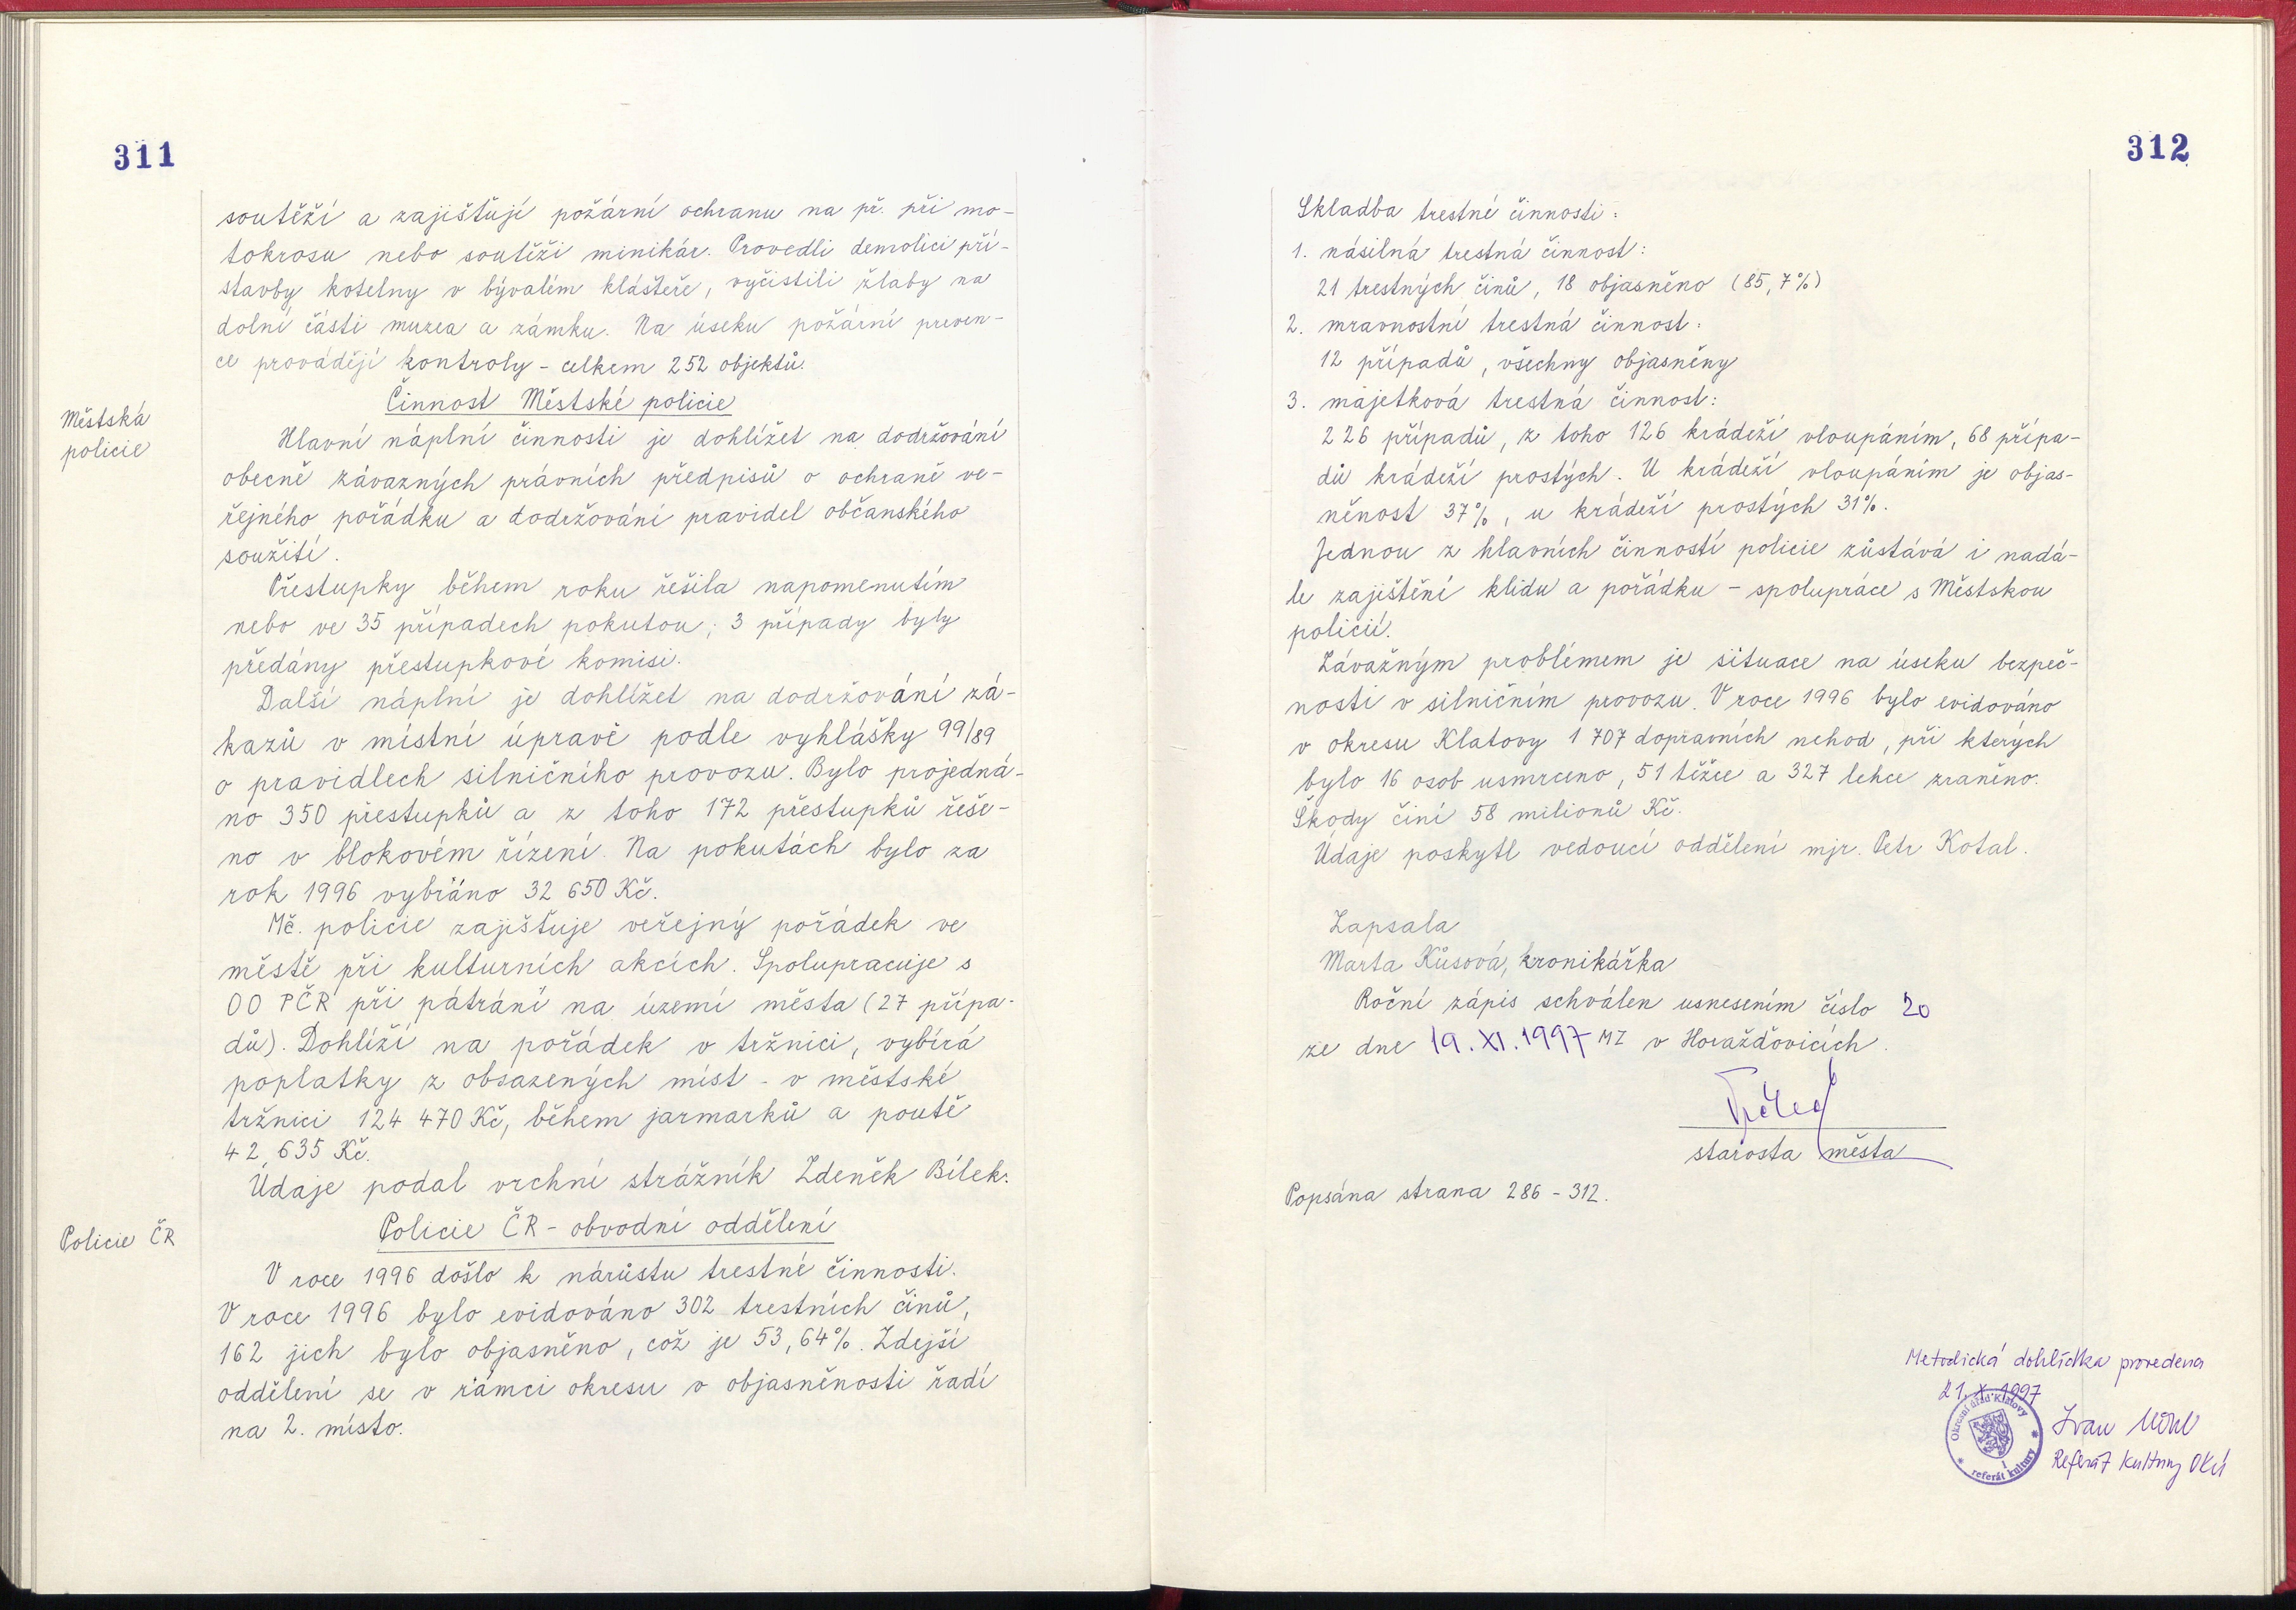 311
soutěží a zajišťují požární ochranu na př. při mo-
tokrosu nebo soutěži minikár. Provedli demolici pří-
stavby kotelny v bývalém klášteře, vyčistili žlaby na
dolní části muzea a zámku. Na úseku požární preven-
ce provádějí kontroly - celkem 252 objektů.
Činnost Městské policie
Městská
policie
Hlavní náplní činnosti je dohlížet na dodržování
obecně závazných právních předpisů o ochraně ve-
řejného pořádku a dodržování pravidel občanského
soužití.
Přestupky během roku řešila napomenutím
nebo ve 35 případech pokutou; 3 případy byly
předány přestupkové komisi.
Další náplní je dohlížet na dodržování zá-
kazů v místní úpravě podle vyhlášky 99/89
o pravidlech silničního provozu. Bylo projedná-
no 350 přestupků a z toho 172 přestupků řeše-
no v blokovém řízení. Na pokutách bylo za
rok 1996 vybráno 32 650 Kč.
Mě. policie zajišťuje veřejný pořádek ve
městě při kulturních akcích. Spolupracuje s
OO PČR při pátrání na území města (27 přípa-
dů). Dohlíží na pořádek v tržnici, vybírá
poplatky z obsazených míst - v městské
tržnici 124 470 Kč, během jarmarků a poutě
42 635 Kč.
Údaje podal vrchní strážník Zdeněk Bílek.
Policie ČR - obvodní oddělení
Policie ČR
V roce 1996 došlo k nárůstu trestné činnosti.
V roce 1996 bylo evidováno 302 trestních činů,
162 jich bylo objasněno, což je 53,64%. Zdejší
oddělení se v rámci okresu v objasněnosti řadí
na 2. místo.
312
Skladba trestné činnosti:
1. násilná trestná činnost:
21 trestných činů, 18 objasněno (85,7%)
2. mravnostní trestná činnost:
12 případů, všechny objasněny
3. majetková trestná činnost:
226 případů, z toho 126 krádeží vloupáním, 68 přípa-
dů krádeží prostých. U krádeží vloupáním je objas-
něnost 37%, u krádeží prostých 31%.
Jednou z hlavních činností policie zůstává i nadá-
le zajištění klidu a pořádku - spolupráce s Městskou
policií.
Závažným problémem je situace na úseku bezpeč-
nosti v silničním provozu. V roce 1996 bylo evidováno
v okresu Klatovy 1 707 dopravních nehod, při kterých
bylo 16 osob usmrceno, 51 těžce a 327 lehce zraněno.
Škody činí 58 milionů Kč.
Údaje poskytl vedoucí oddělení mjr. Petr Kotal.
Zapsala
Marta Kůsová, kronikářka
Roční zápis schválen usnesením číslo 20
ze dne 19. XI. 1997 MZ v Horažďovicích.
starosta města
Popsána strana 286 - 312.
Metodická dohlídka provedena
21. X. 1997
Okresní úřad Klatovy
referát kultury
Ivan
Referát kultury OkÚ